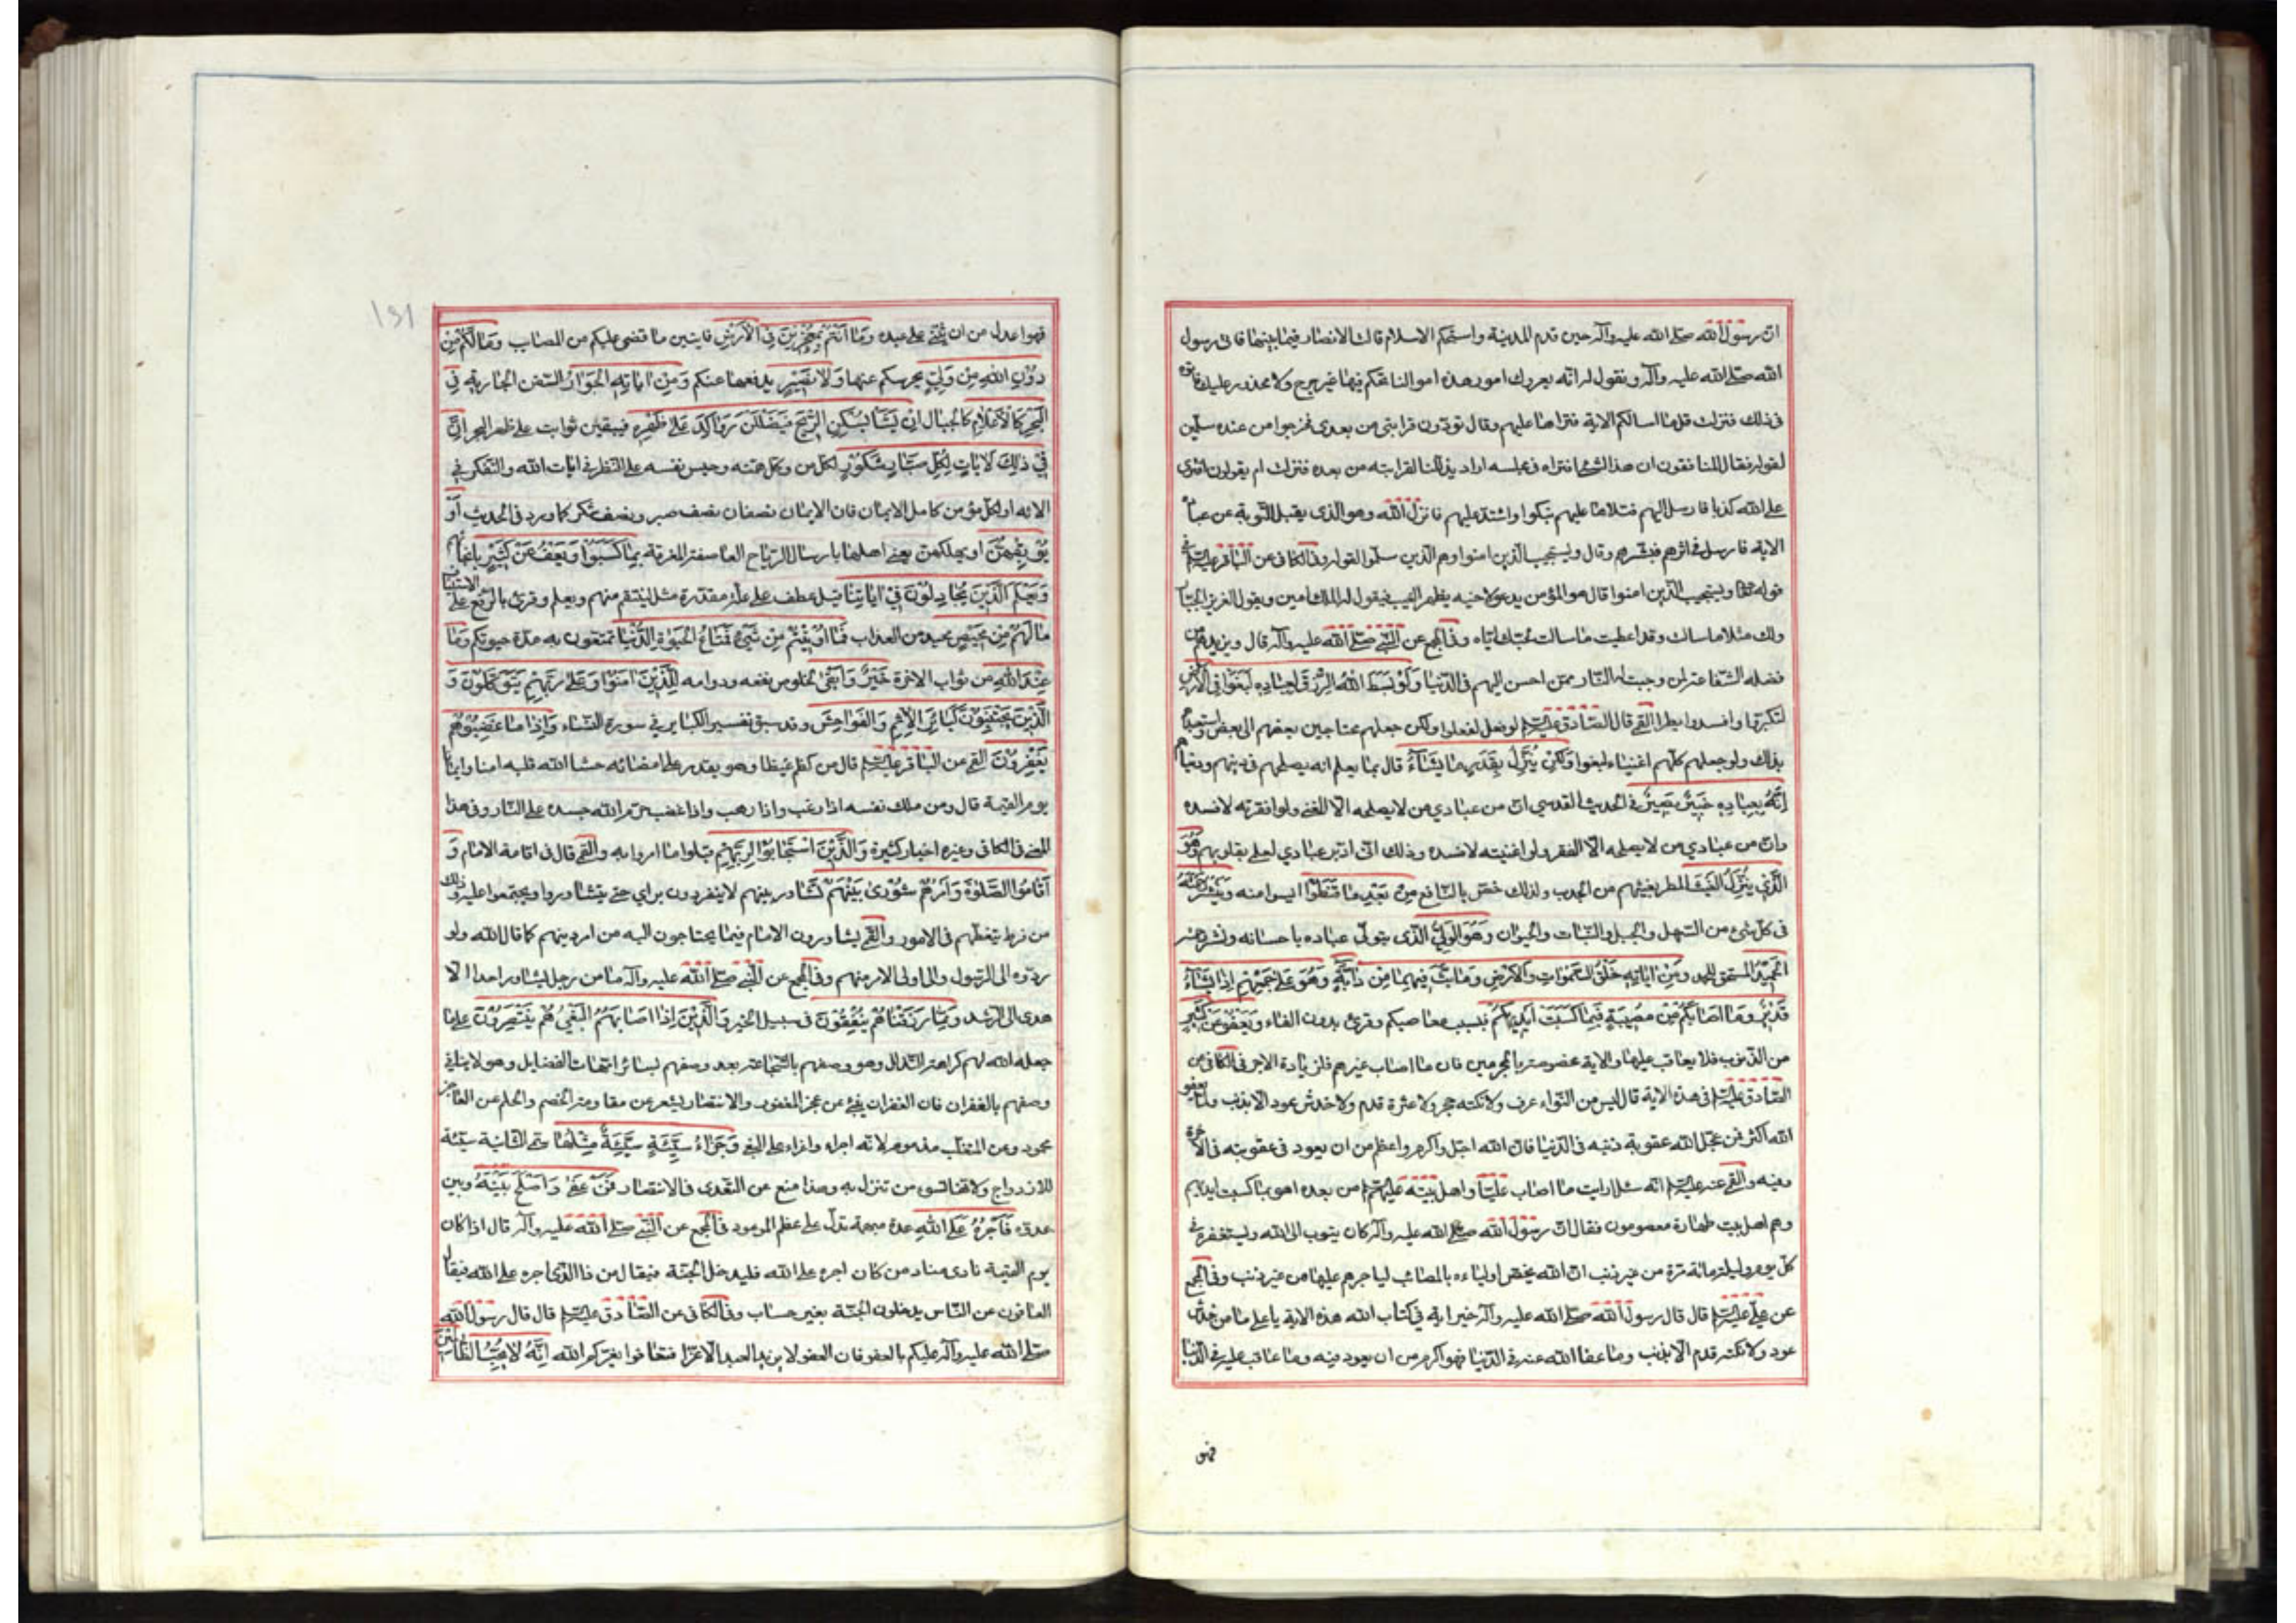 ان رسول الله صلى الله عليه وآله حين قدم المدينة واستحكم الاسلام قالت الانصار فيما بينها فاتى رسول
الله صلى الله عليه وآله ونقول له انه يعروك امور هذه اموالنا تحكم فيها غير حرج ولا محذور عليك فاتوه
فى ذلك فنزلت قل لا اسالكم الاية فقراها عليهم وقال تودون قرابتى من بعدى فخرجوا من عنده مسلمين
لقوله فقال المنافقون ان هذا الشئ افتراه فى مجلسه اراد يذللنا لقرابته من بعده فنزلت ام يقولون افترى
على الله كذبا فارسل اليهم فتلاها عليهم فبكوا واشتد عليهم فانزل الله وهو الذى يقبل التوبة عن عباده
الاية فارسل فى اثرهم فبشرهم وقال ويستجيب الذين امنوا وهم الذين سلموا لقوله وفى الكافى عن الباقر عليه السلم فى
قوله تعالى ويستجيب الذين امنوا قال هو المؤمن يدعو لاخيه بظهر الغيب فيقول له الملك امين ويقول العزيز الجبار
ولك مثلا ما سالت وقد اعطيت ما سالت بحبك اياه وفى المجمع عن النبى صلى الله عليه وآله قال ويزيدهم من
فضله الشفاعة لمن وجبت له النار ممن احسن اليهم فى الدنيا وَلَوْ بَسَطَ اللهُ الرِّزْقَ لِعِبَادِهِ لَبَغَوْا فِي الْأَرْضِ
لتكبروا وافسدوا بطرا القمى قال الصادق عليه السلم لو فعل لفعلوا ولكن جعلهم محتاجين بعضهم الى بعض واستعبدهم
بذلك ولو جعلهم كلهم اغنياء لبغوا وَلكِنْ يُنَزِّلُ بِقَدَرٍ مَا يَشَاءُ قال بما يعلم انه يصلحهم فى دينهم ودنياهم
إِنَّهُ بِعِبَادِهِ خَبِيرٌ بَصِيرٌ فى الحديث القدسى ان من عبادي من لا يصلحه الا الغنى ولو افقرته لافسده
وان من عبادي من لا يصلحه الا الفقر ولو اغنيته لافسده وذلك انى ادبر عبادي لعلمى بقلوبهم وَهُوَ
الَّذِي يُنَزِّلُ الْغَيْثَ المطر يغيثهم من الجدب ولذلك خص بالنافع مِنْ بَعْدِ مَا قَنَطُوا ايسوا منه وَيَنْشُرُ رَحْمَتَهُ
فى كل شئ من السهل والجبل والنبات والحيوان وَهُوَ الْوَلِيُّ الذى يتولى عباده باحسانه ونشر رحمته
الْحَمِيدُ المستحق للحمد وَمِنْ ايَاتِهِ خَلْقُ السَّمٰوَاتِ وَالْأَرْضِ وَمَا بَثَّ فِيهِمَا مِنْ دَابَّةٍ وَهُوَ عَلَى جَمْعِهِمْ إِذَا يَشَاءُ
قَدِيرٌ وَمَا اَصَابَكُمْ مِنْ مُصِيبَةٍ فَبِمَا كَسَبَتْ اَيْدِيكُمْ فبسبب معاصيكم وقرئ بدون الفاء وَيَعْفُو عَنْ كَثِيرٍ
من الذنوب فلا يعاقب عليها والاية مخصوصة بالمجرمين فان ما اصاب غيرهم فلزيادة الاجر فى الكافى عن
الصادق عليه السلم فى هذه الاية قال ليس من التواء عرق ولا نكبة حجر ولا عثرة قدم ولا خدش عود الا بذنب ولما يعفو
الله اكثر فمن عجل الله عقوبة ذنبه فى الدنيا فان الله اجل واكرم واعظم من ان يعود فى عقوبته فى الاخرة
وفيه والقمى عنه عليه السلم انه سئل ارايت ما اصاب عليا واهل بيته عليهم السلم من بعده اهو بما كسبت ايديهم
وهم اهل بيت طهارة معصومون فقال ان رسول الله صلى الله عليه وآله كان يتوب الى الله ويستغفره فى
كل يوم وليلة مائة مرة من غير ذنب ان الله يخص اولياءه بالمصائب لياجرهم عليها من غير ذنب وفى المجمع
عن على عليه السلم قال قال رسول الله صلى الله عليه وآله خير اية فى كتاب الله هذه الاية يا على ما من خدش
عود ولا نكبة قدم الا بذنب وما عفا الله عنه فى الدنيا فهو اكرم من ان يعود فيه وما عاقب عليه فى الدنيا
فهو
١٥١
فهو اعدل من ان يثنى على عبده وَمَا اَنْتُمْ بِمُعْجِزِينَ فِي الْأَرْضِ فايتين ما قضى عليكم من المصائب وَمَا لَكُمْ مِنْ
دُونِ اللهِ مِنْ وَلِيٍّ يحرسكم عنها وَلَا نَصِيرٍ يدفعها عنكم وَمِنْ ايَاتِهِ الْجَوَارِ السفن الجارية فِي
الْبَحْرِ كَالْأَعْلَامِ كالجبال اِنْ يَشَأْ يُسْكِنِ الرِّيحَ فَيَظْلَلْنَ رَوَاكِدَ عَلَى ظَهْرِهِ فيبقين ثوابت على ظهر البحر اِنَّ
فِي ذلِكَ لَايَاتٍ لِكُلِّ صَبَّارٍ شَكُورٍ لكل من وكل همته وحبس نفسه على النظر فى ايات الله والتفكر فى
الائه او لكل مؤمن كامل الايمان فان الايمان نصفان نصف صبر ونصف شكر كما ورد فى الحديث اَوْ
يُوبِقْهُنَّ او يهلكهن يعنى اهلها بارسال الرياح العاصفة المغرقة بِمَا كَسَبُوا وَيَعْفُ عَنْ كَثِيرٍ بانجائهم
وَيَعْلَمَ الَّذِينَ يُجَادِلُونَ فِي ايَاتِنَا قيل عطف على علة مقدرة مثل لينتقم منهم ويعلم وقرئ بالرفع على الاستيناف
مَا لَهُمْ مِنْ مَحِيصٍ محيد من العذاب فَمَا اُوتِيتُمْ مِنْ شَيْءٍ فَمَتَاعُ الْحَيٰوةِ الدُّنْيَا تمتعون به مدة حيوتكم وَمَا
عِنْدَ اللهِ من ثواب الاخرة خَيْرٌ وَاَبْقَى لخلوص نفعه ودوامه لِلَّذِينَ امَنُوا وَعَلَى رَبِّهِمْ يَتَوَكَّلُونَ وَ
الَّذِينَ يَجْتَنِبُونَ كَبَائِرَ الْإِثْمِ وَالْفَوَاحِشَ وقد سبق تفسير الكباير فى سورة النساء وَإِذَا مَا غَضِبُوا هُمْ
يَغْفِرُونَ القمى عن الباقر عليه السلم قال من كظم غيظا وهو يقدر على امضائه حشا الله قلبه امنا وايمانا
يوم القيمة قال ومن ملك نفسه اذا رغب واذا رهب واذا غضب حرم الله جسده على النار وفى هذا
المعنى فى الكافى وغيره اخبار كثيرة وَالَّذِينَ اسْتَجَابُوا لِرَبِّهِمْ قبلوا ما امروا به والقمى قال فى اقامة الامام وَ
اَقَامُوا الصَّلٰوةَ وَاَمْرُهُمْ شُورَى بَيْنَهُمْ تشاور بينهم لا ينفردون براي حتى يتشاوروا ويجتمعوا عليه وذلك
من فرط تيقظهم فى الامور والقمى يشاورون الامام فيما يحتاجون اليه من امر دينهم كما قال الله ولو
ردوه الى الرسول والى اولى الامر منهم وفى المجمع عن النبى صلى الله عليه وآله ما من رجل يشاور احدا الا
هدى الى الرشد وَمِمَّا رَزَقْنَاهُمْ يُنْفِقُونَ فى سبيل الخير وَالَّذِينَ إِذَا اَصَابَهُمُ الْبَغْيُ هُمْ يَنْتَصِرُونَ على ما
جعله الله لهم كراهة التذلل وهو وصفهم بالشجاعة بعد وصفهم بسائر امهات الفضايل وهو لا ينافى
وصفهم بالغفران فان الغفران ينبئ عن عجز المغفور والانتصار يشعر عن مقاومة الخصم والحلم عن العاجز
محمود وعن المتغلب مذموم لانه اجراء واغراء على البغى وَجَزَاءُ سَيِّئَةٍ سَيِّئَةٌ مِثْلُهَا سمى الثانية سيئة
للازدواج ولانها تسوء من تنزل به وهذا منع عن التعدى فى الانتصار فَمَنْ عَفَى وَاَصْلَحَ بينه وبين
عدوه فَاَجْرُهُ عَلَى اللهِ عدة مبهمة تدل على عظم الموعود فى المجمع عن النبى صلى الله عليه وآله قال اذا كان
يوم القيمة نادى مناد من كان اجره على الله فليدخل الجنة فيقال من ذا الذى اجره على الله فيقال
العافون عن الناس يدخلون الجنة بغير حساب وفى الكافى عن الصادق عليه السلم قال قال رسول الله
صلى الله عليه وآله عليكم بالعفو فان العفو لا يزيد العبد الا عزا فتعافوا يعزكم الله اِنَّهُ لَا يُحِبُّ الظَّالِمِينَ